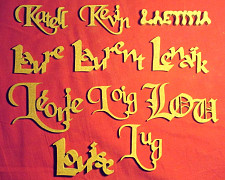 Katell Kevin LAETITIA
Laure Laurent Lenaïk
Léonie Loig LOU
Louise Lug